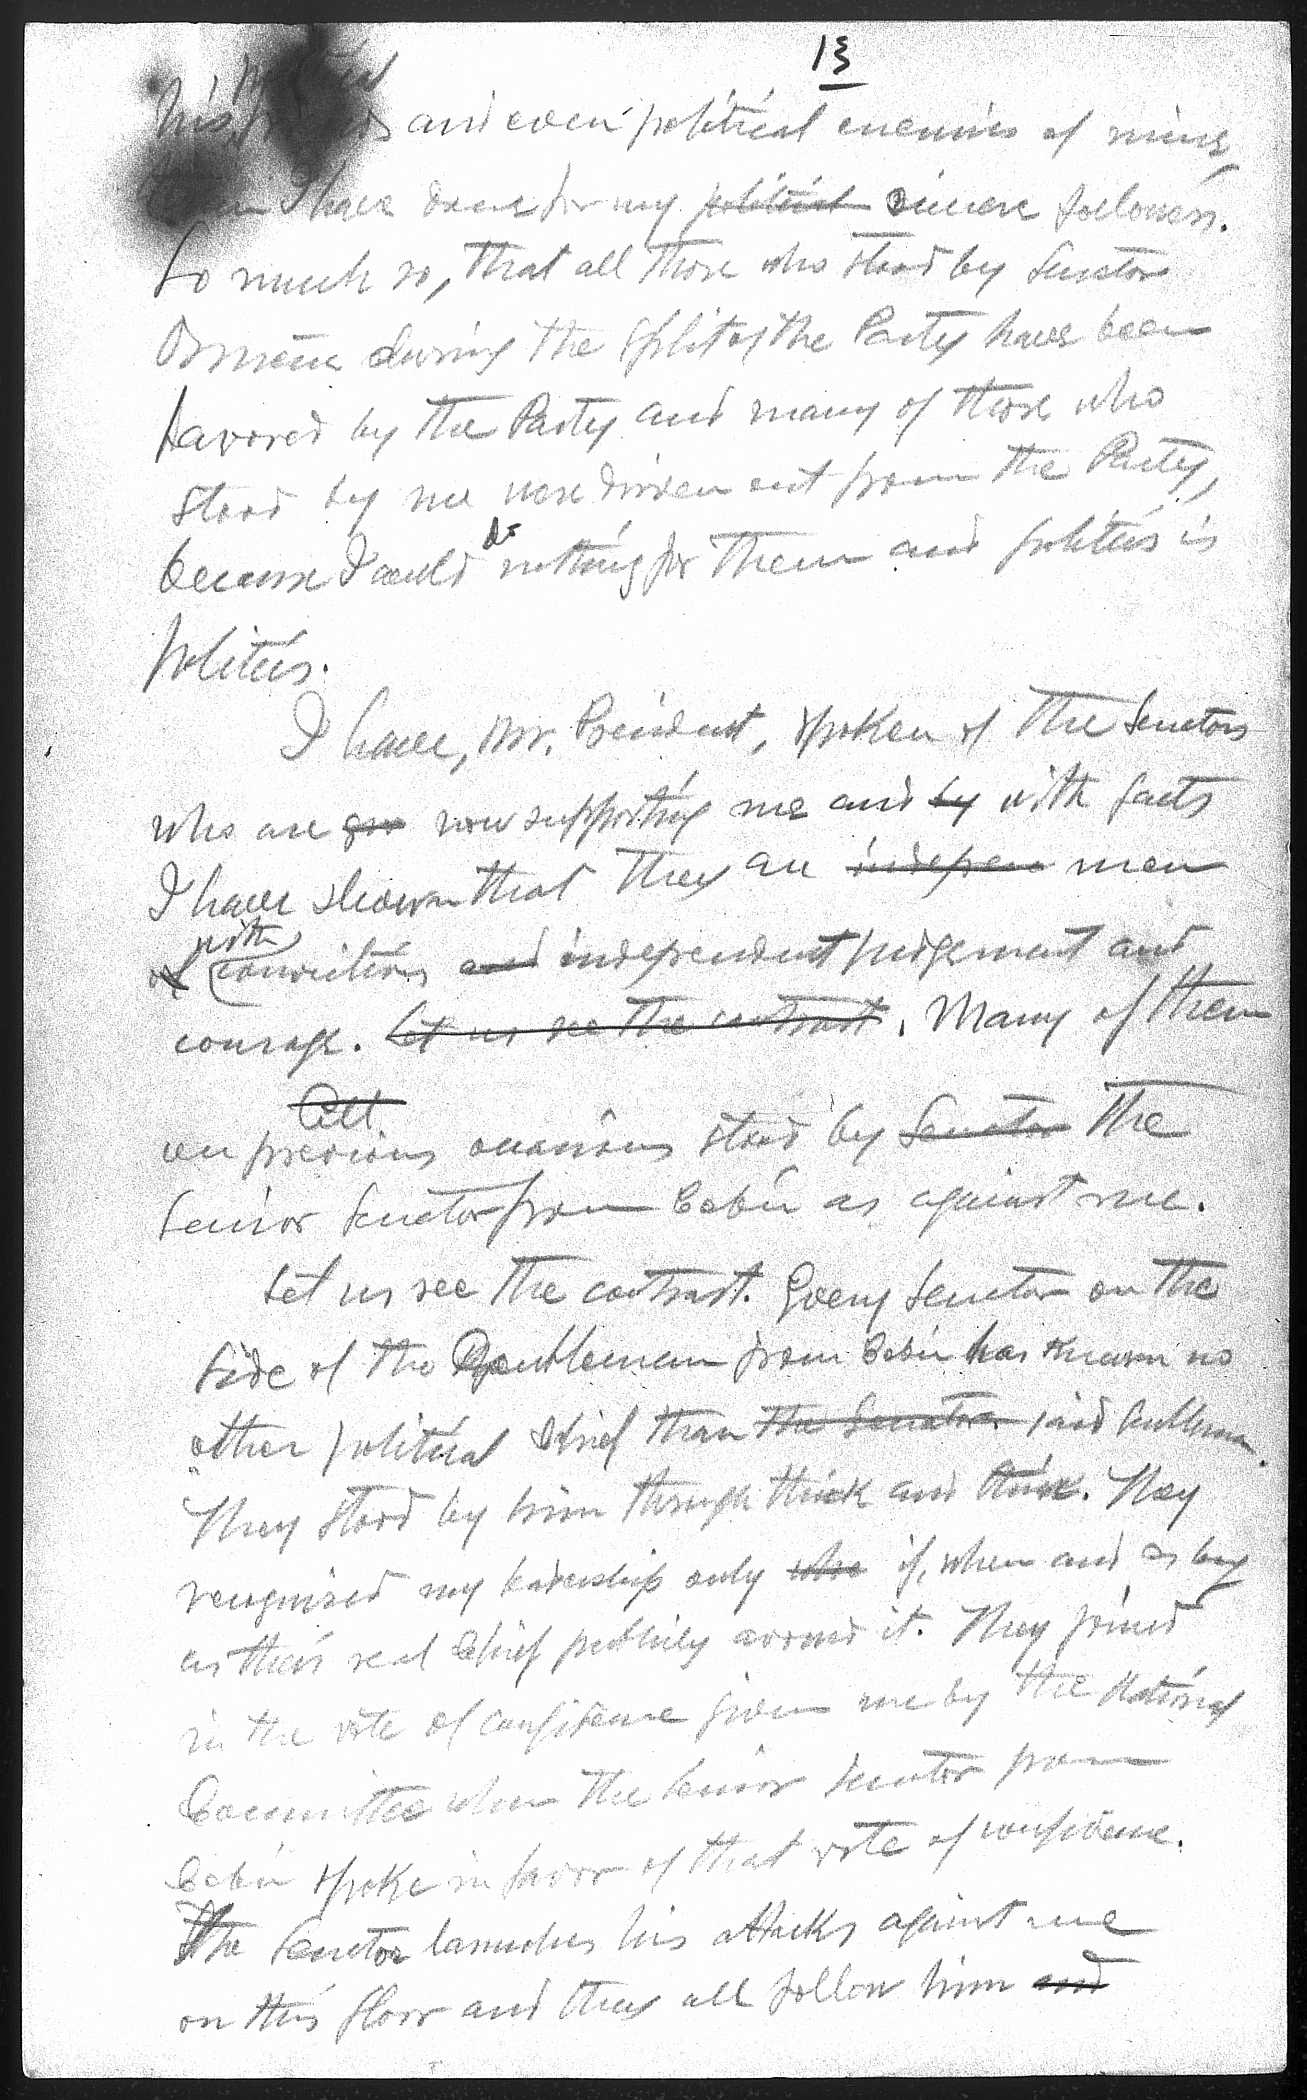 13
his and even political enemies of mine,
than I have done for my political sincere followers.
So much so, that all those who stood by Senator
Osmeña during the split of the Party have been
favored by the Party and many of those who
stood by me were driven out from the Party,
because I could do nothing for them and politics is
politics.
I have, Mr. President, spoken of the Senators
who are now supporting me and by with facts
I have shown that they are indepen men
of with convictions and independent judgement and
courage. Let us see the contrast. Many of them
All
on previous occasions stood by Senator the
Senior Senator from Cebú as against me.
Let us see the contrast. Every Senator on the
side of the Gentleman from Cebú has known no
other political chief than the Senator said Gentleman.
They stood by him through thick and thin. They
recognized my leadership only when if, when and as long
as their real chief publicly avowed it. They joined
in the vote of confidence given me by the National
Committee when the Senior Senator from
Cebú spoke in favor of that vote of confidence.
The Senator launches his attacks against me
on this floor and they all follow him and